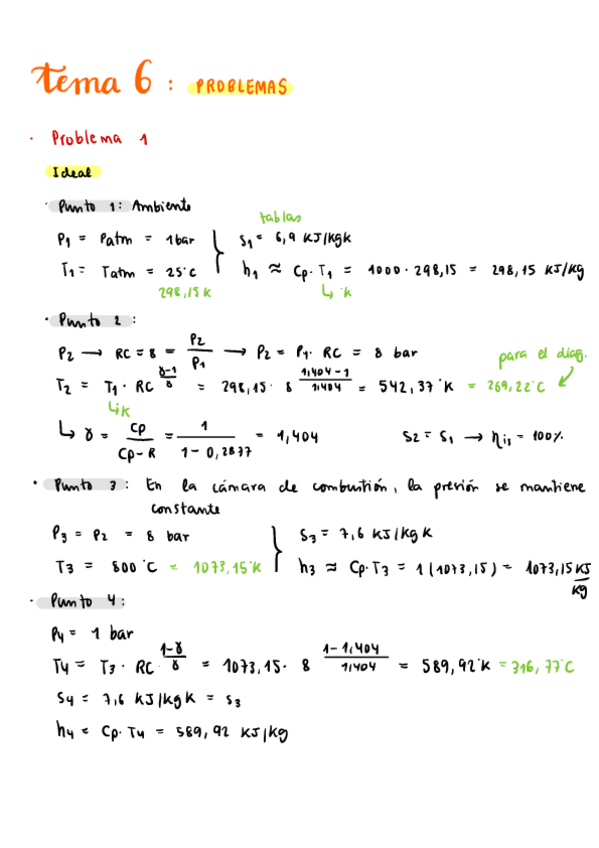 tema 6 : PROBLEMAS
· Problema 1
Ideal
· Punto 1: Ambiente
tablas
P1 = Patm = 1bar } S1 = 6,9 KJ/KgK
T1 = Tatm = 25°C h1 ≈ Cp·T1 = 1000 · 298,15 = 298,15 KJ/Kg
298,15 K ↳ °K
· Punto 2 :
P2 → RC = 8 = P2/P1 → P2 = P1· RC = 8 bar para el diag.
T2 = T1 · RC^(γ-1/γ) = 298,15 · 8^(1,404-1/1,404) = 542,37 °K = 269,22°C
↳K
↳ γ = Cp/(Cp-R) = 1/(1-0,2877) = 1,404 S2 = S1 → ηis = 100%
· Punto 3 : En la cámara de combustión, la presión se mantiene
constante
P3 = P2 = 8 bar } S3 = 7,6 KJ/Kg K
T3 = 800 °C = 1073,15°K h3 ≈ Cp·T3 = 1 (1073,15) = 1073,15 KJ/Kg
· Punto 4 :
P4 = 1 bar
T4 = T3 · RC^(1-γ/γ) = 1073,15 · 8^(1-1,404/1,404) = 589,92 °K = 316,77°C
S4 = 7,6 KJ/Kg K = S3
h4 = Cp·T4 = 589,92 KJ/Kg